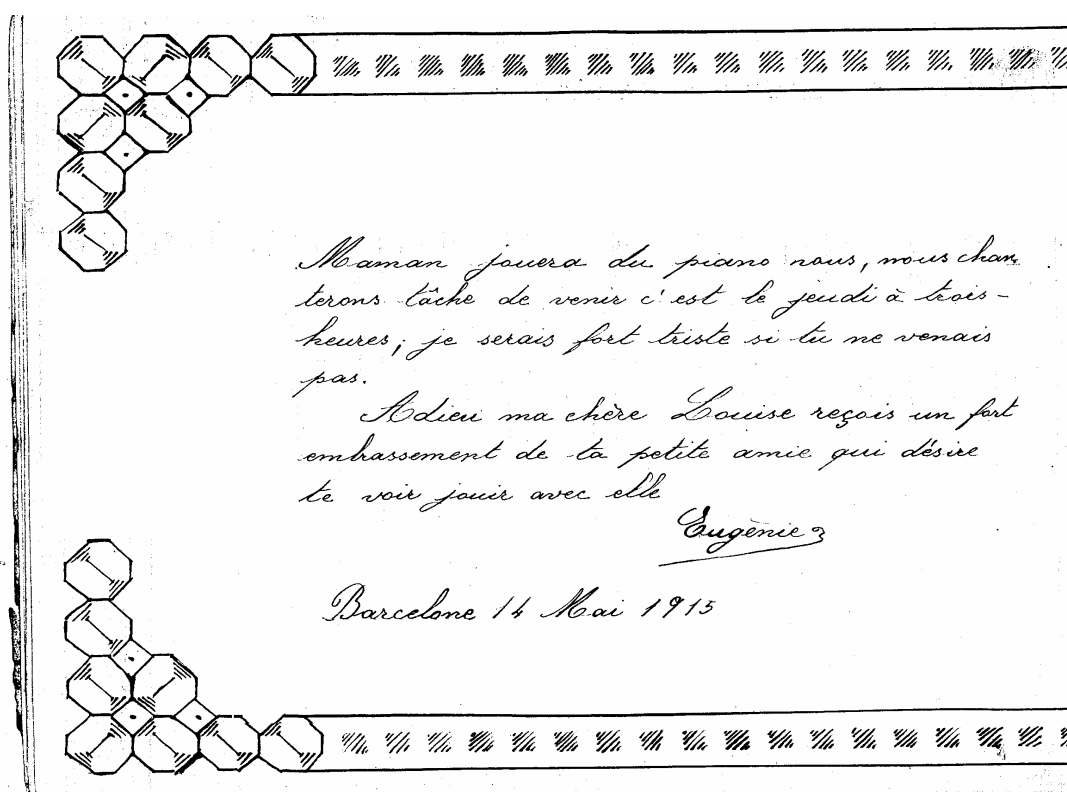 Maman jouera du piano nous, nous chan
terons tâche de venir c'est le jeudi à trois-
heures, je serais fort triste si tu ne venais
pas.
Adieu ma chère Louise reçois un fort
embrassement de ta petite amie qui désire
te voir jouir avec elle
Eugènie
Barcelone 14 Mai 1915